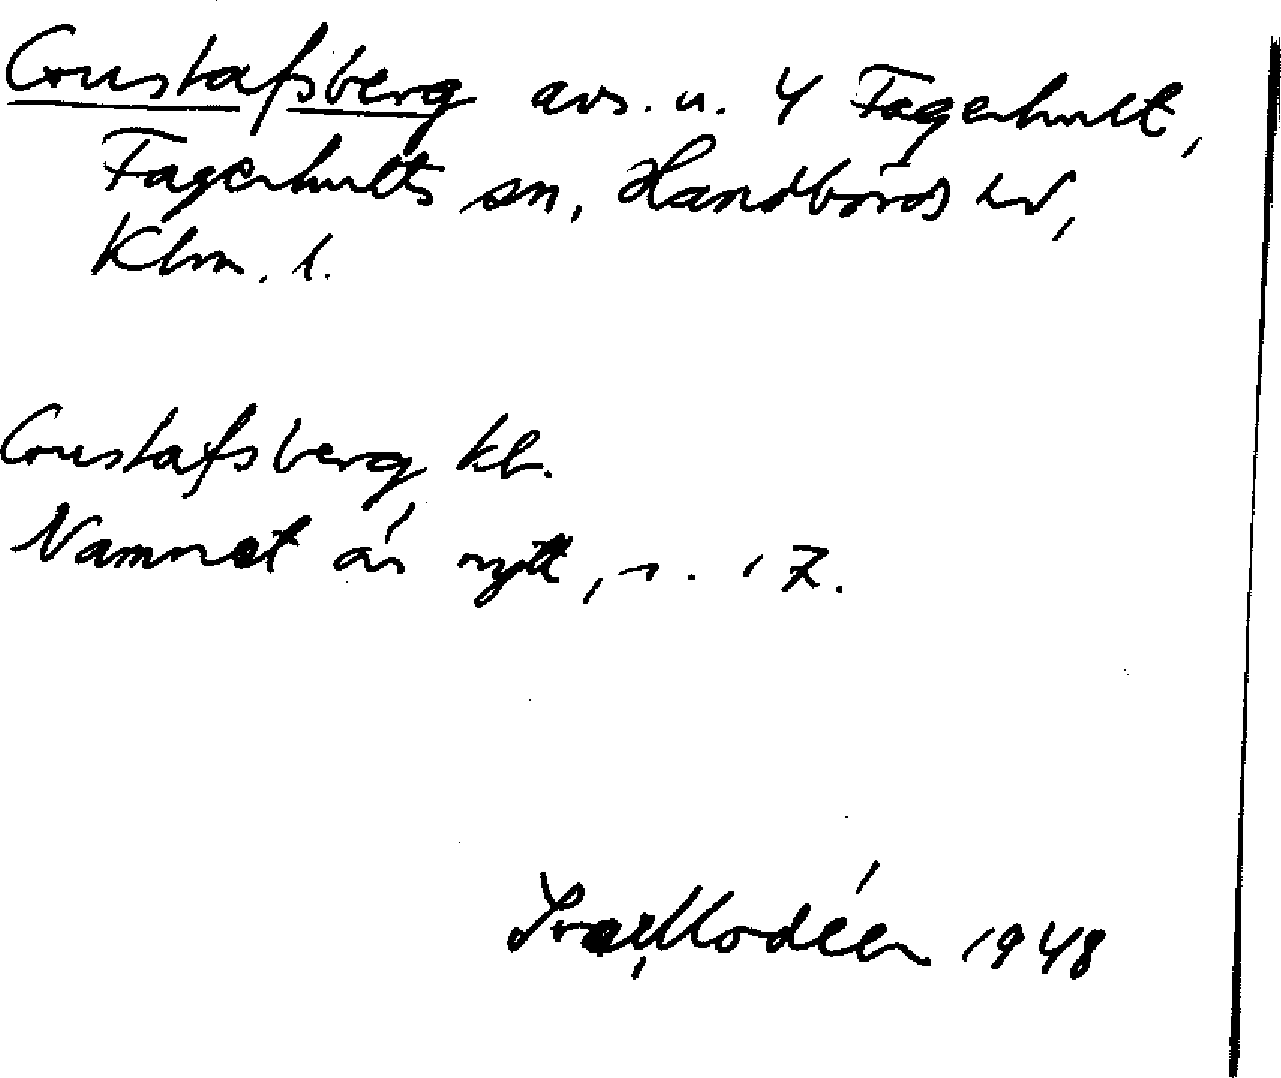 Gustafsberg avs. u. 4 Fagerhult,
Fagerhults sn, Handbörds hd,
Klm. l.
Gustafsberg kb.
Namnet är nytt, s. 17.
Ivar Modéer 1948